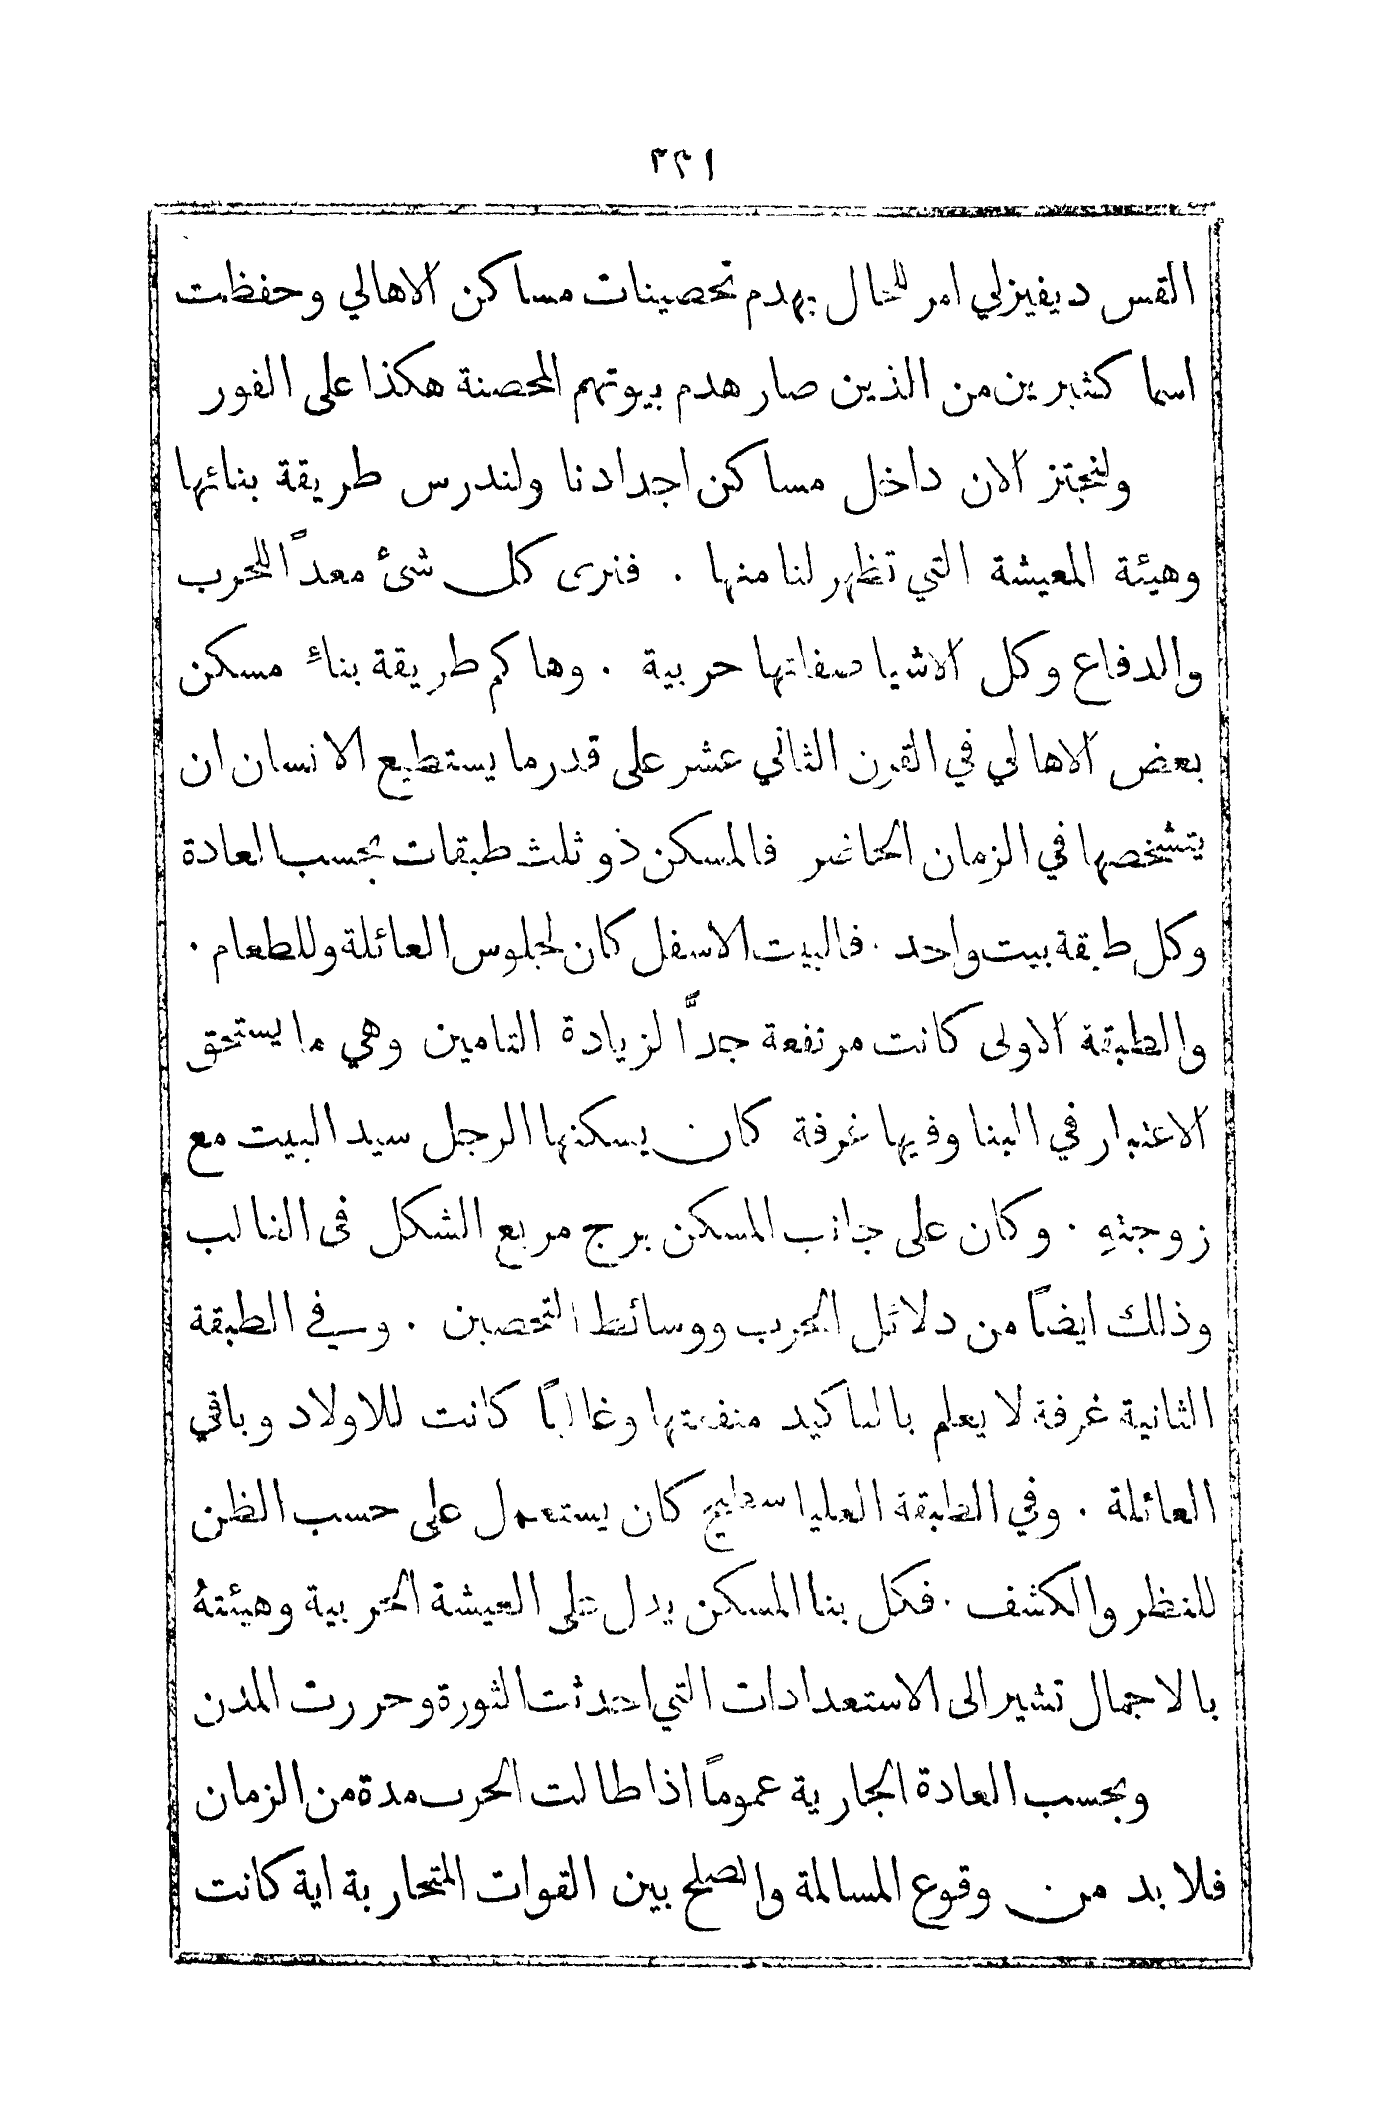 ٢٢١
القس ديفيزلي امر للحال بهدم تحصينات مساكن الاهالي وحفظت
اسما كثيرين من الذين صار هدم بيوتهم المحصنة هكذا على الفور
ولنجتز الان داخل مساكن اجدادنا ولندرس طريقة بنائها
وهيئة المعيشة التي تظهر لنا منها . فنرى كل شئ معداً للحرب
والدفاع وكل الاشيا صفاتها حربية . وهاكم طريقة بناء مسكن
بعض الاهالي في القرن الثاني عشر على قدر ما يستطيع الانسان ان
يتشخصها في الزمان الحاضر فالمسكن ذو ثلث طبقات بحسب العادة
وكل طبقة بيت واحد . فالبيت الاسفل كان لجلوس العائلة وللطعام .
والطبقة الاولى كانت مرتفعة جدًّا لزيادة التامين وهي ما يستحق
الاعتبار في البنا وفيها غرفة كان يسكنها الرجل سيد البيت مع
زوجتهِ . وكان على جانب المسكن برج مربع الشكل في الغالب
وذلك ايضاً من دلائل الحرب ووسائط التحصين . وفي الطبقة
الثانية غرفة لا يعلم بالتاكيد منفعتها وغالباً كانت للاولاد وباقي
العائلة . وفي الطبقة العليا سطيح كان يستعمل على حسب الظن
للنظر والكشف . فكل بنا المسكن يدل على العيشة الحربية وهيئتهُ
بالاجمال تشير الى الاستعدادات التي احدثت الثورة وحررت المدن
وبحسب العادة الجارية عموماً اذا طالت الحرب مدة من الزمان
فلا بد من وقوع المسالمة والصلح بين القوات المتحاربة اية كانت